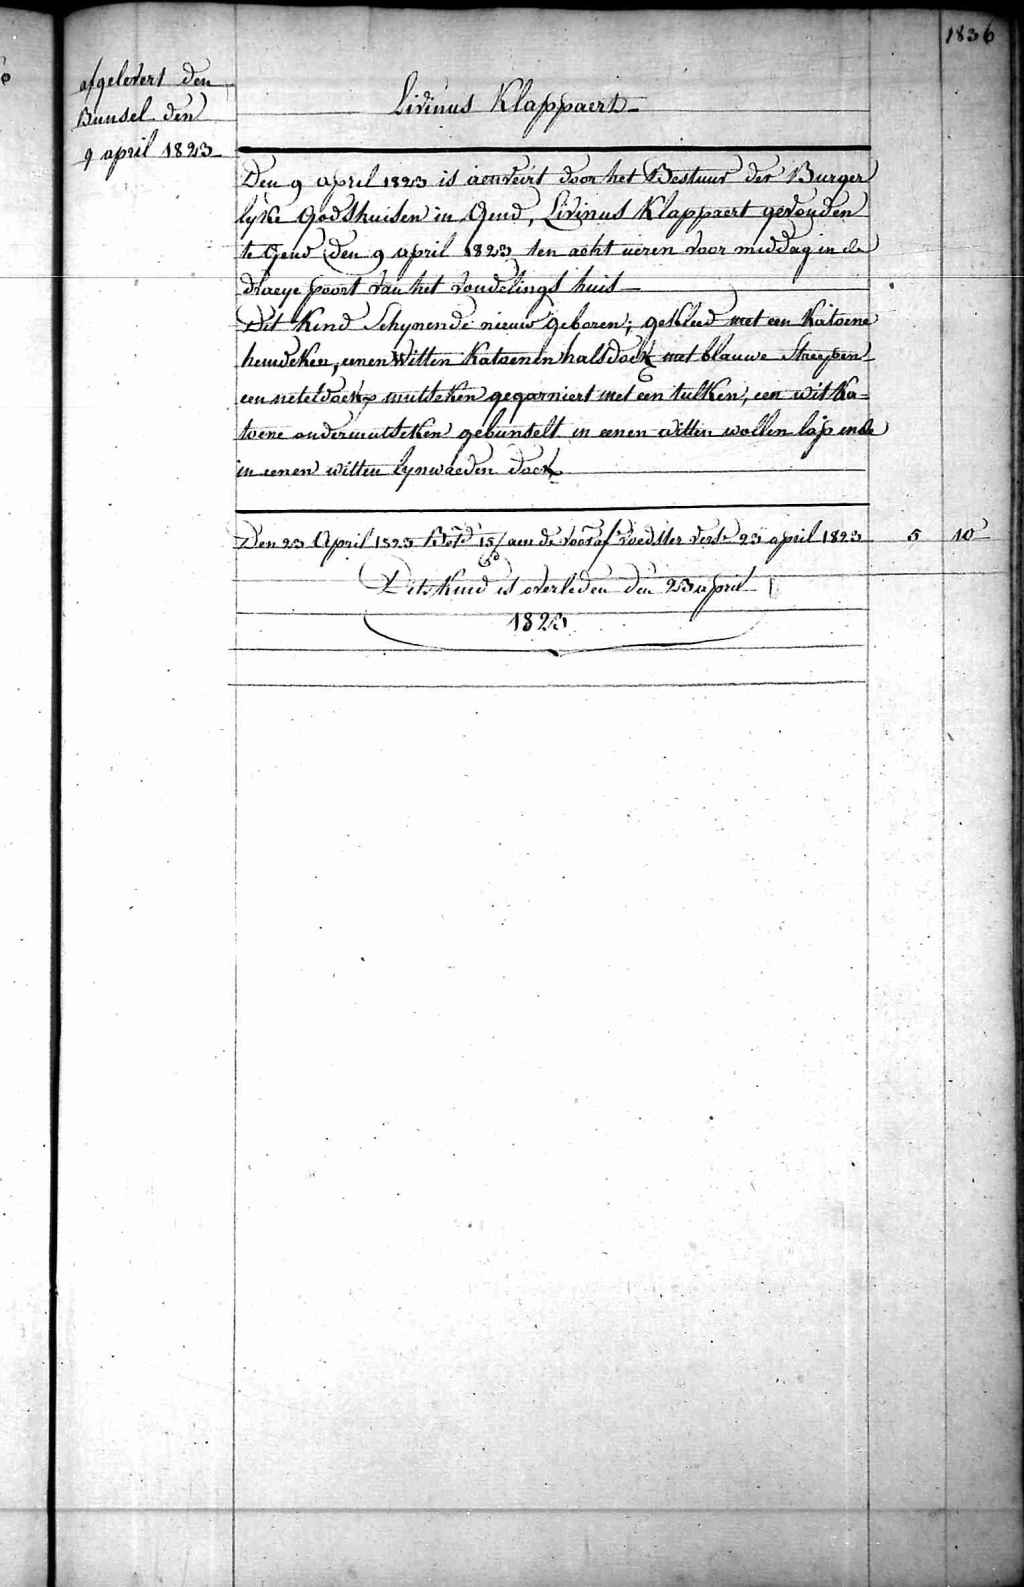 1836
afgelevert den
Bunsel den
9 april 1823
Livinus Klappaert
Den 9 april 1823 is aenveirt door het Bestuur der Burger
lyke Godshuisen in Gend, Livinus Klappaert gevonden
te Gend den 9 april 1823 ten acht ueren voor middag in de
draeye poort van het vondelings huis
Dit Kind Schynende nieuw geboren; gekleed met een Katoene
hemdeken, eenen Witten Katoenen halsdoek met blauwe Streepen
een neteldoek mutseken gegarniert met een tulken, een wit Ka=
toene ondermutseken gebunselt in eenen witten wollen lap ende
in eenen witten Lynwaeden doek
Den 23 April 1823 15/ aen de voedster 23 april 1823 5 10
Dits Kind is overleden den 23 april
1823